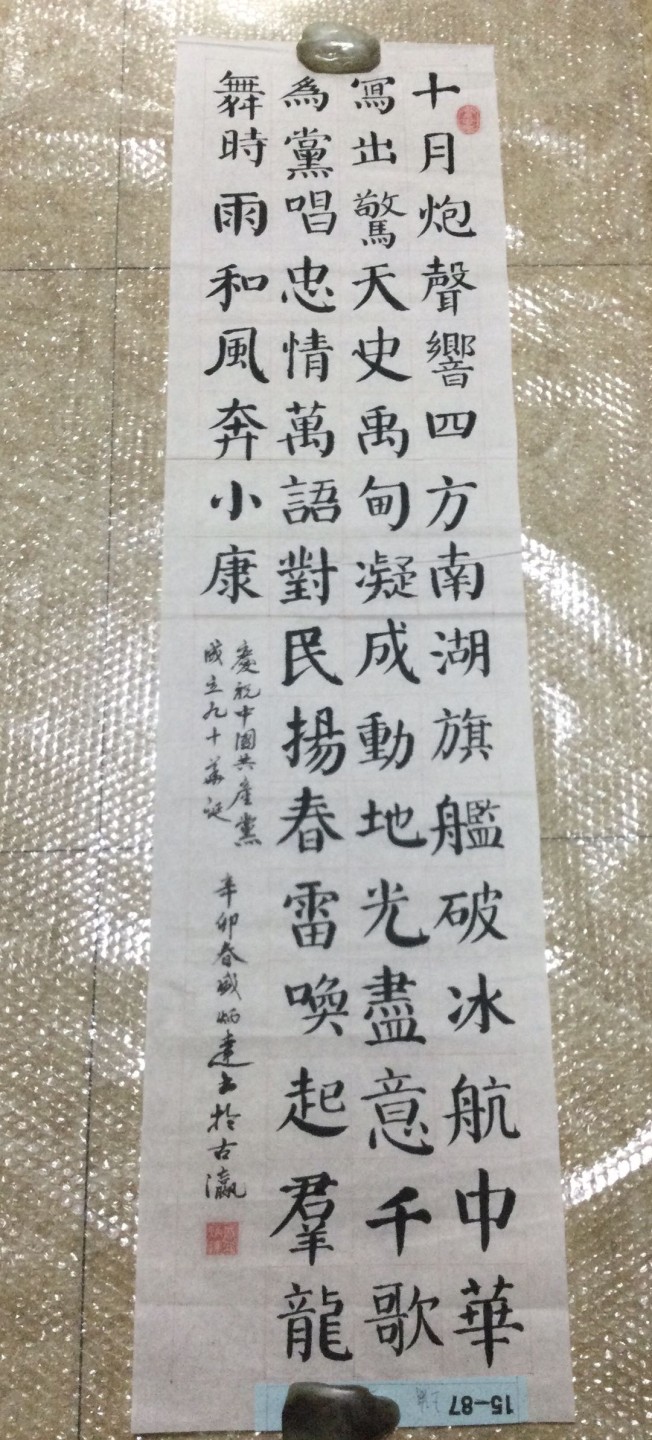 十月炮聲響四方南湖旗艦破冰航中華
寫出驚天史禹甸凝成動地光盡意千歌
為黨唱忠情萬語對民揚春雷喚起羣龍
舞時雨和風奔小康
慶祝中國共產黨
成立九十華誕
辛卯春盛炳達書於古瀛
15-87